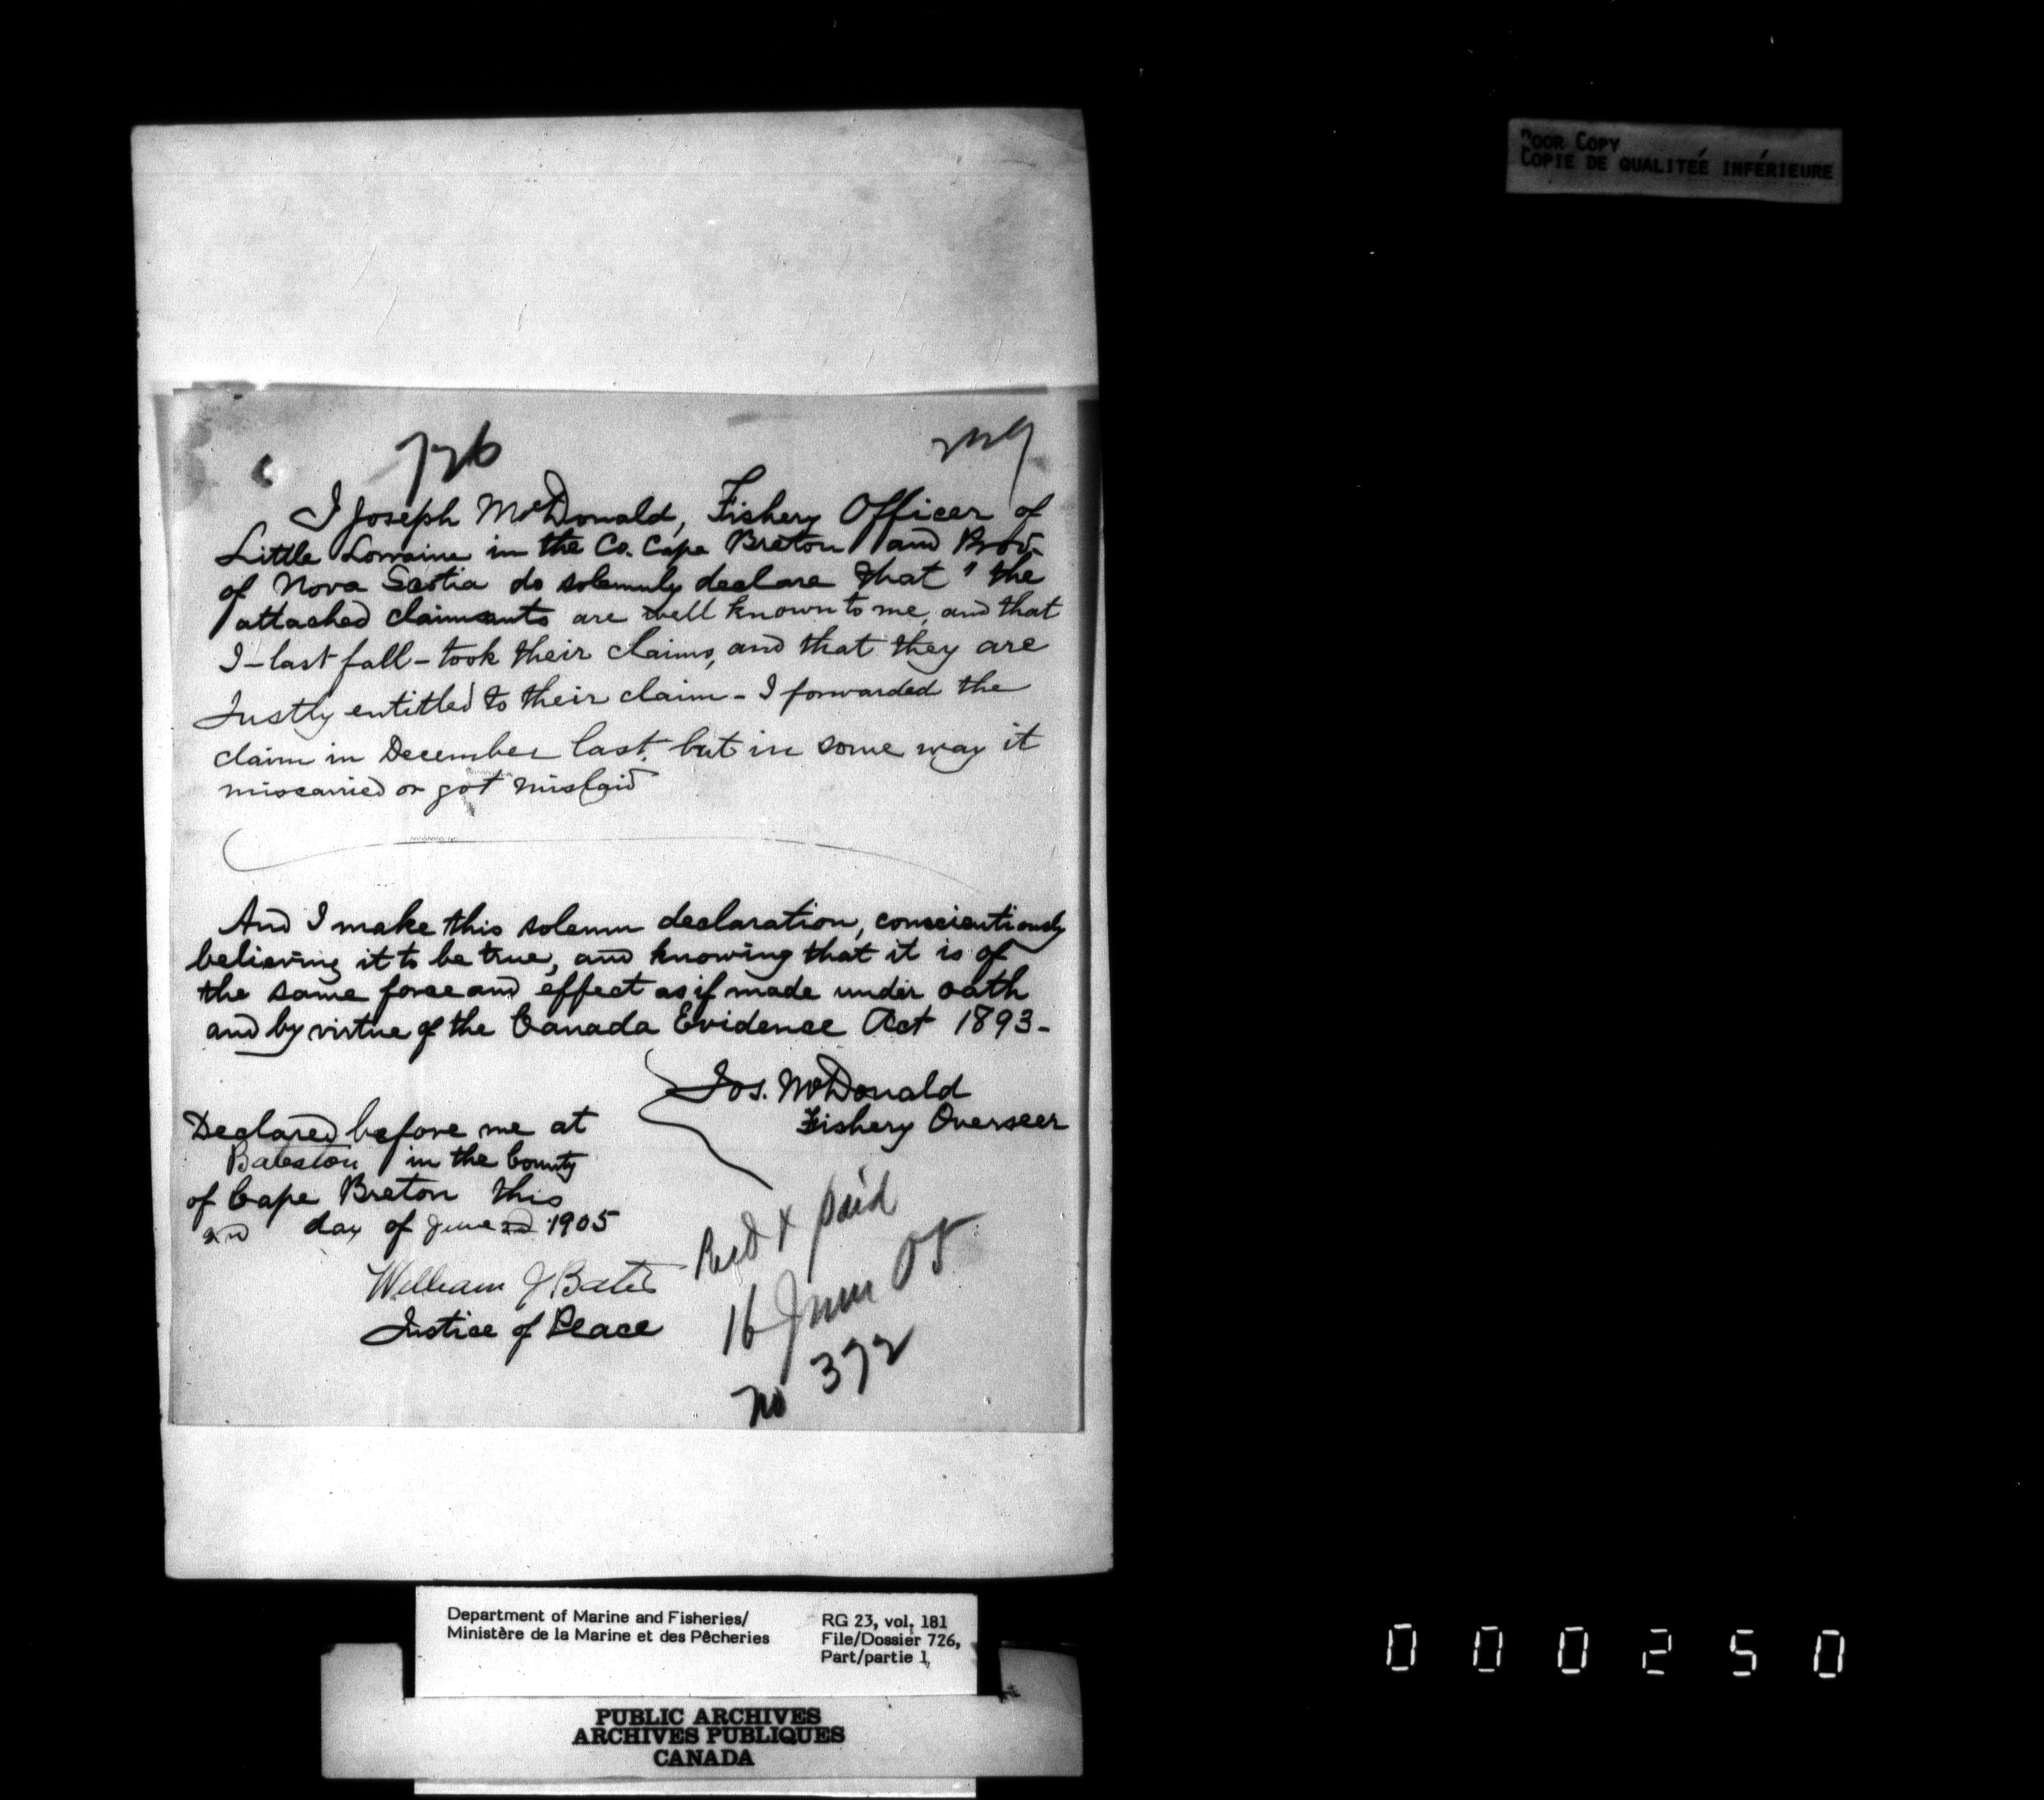 POOR COPY
COPIE DE QUALITEÉ INFÉRIEURE
726
I Joseph McDonald, Fishery Officer of
Little Lorraine in the Co. Cape Breton and Prov.
of Nova Scotia do solemnly declare that " the
attached claimants are well known to me, and that
I - last fall - took their claims, and that they are
Justly entitled to their claim - I forwarded the
claim in December last, but in some way it
miscarried or got mislaid
And I make this solemn declaration, conscientiously
believing it to be true, and knowing that it is of
the same force and effect as if made under oath
and by virtue of the Canada Evidence Act 1893-
Jos. McDonald
Fishery Overseer
Declared before me at
in the County
of Cape Breton this
2nd day of June 2nd 1905
William J Bates
Justice of Peace
Recd & paid
16 June 05
No 372
Department of Marine and Fisheries/
Ministère de la Marine et des Pêcheries
RG 23, vol. 181
File/Dossier 726,
Part/partie 1,
PUBLIC ARCHIVES
ARCHIVES PUBLIQUES
CANADA
000250